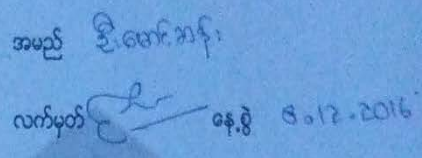 အမည် ဦးမောင်ဆန်း
လက်မှတ် နေ့စွဲ 8.12.2016